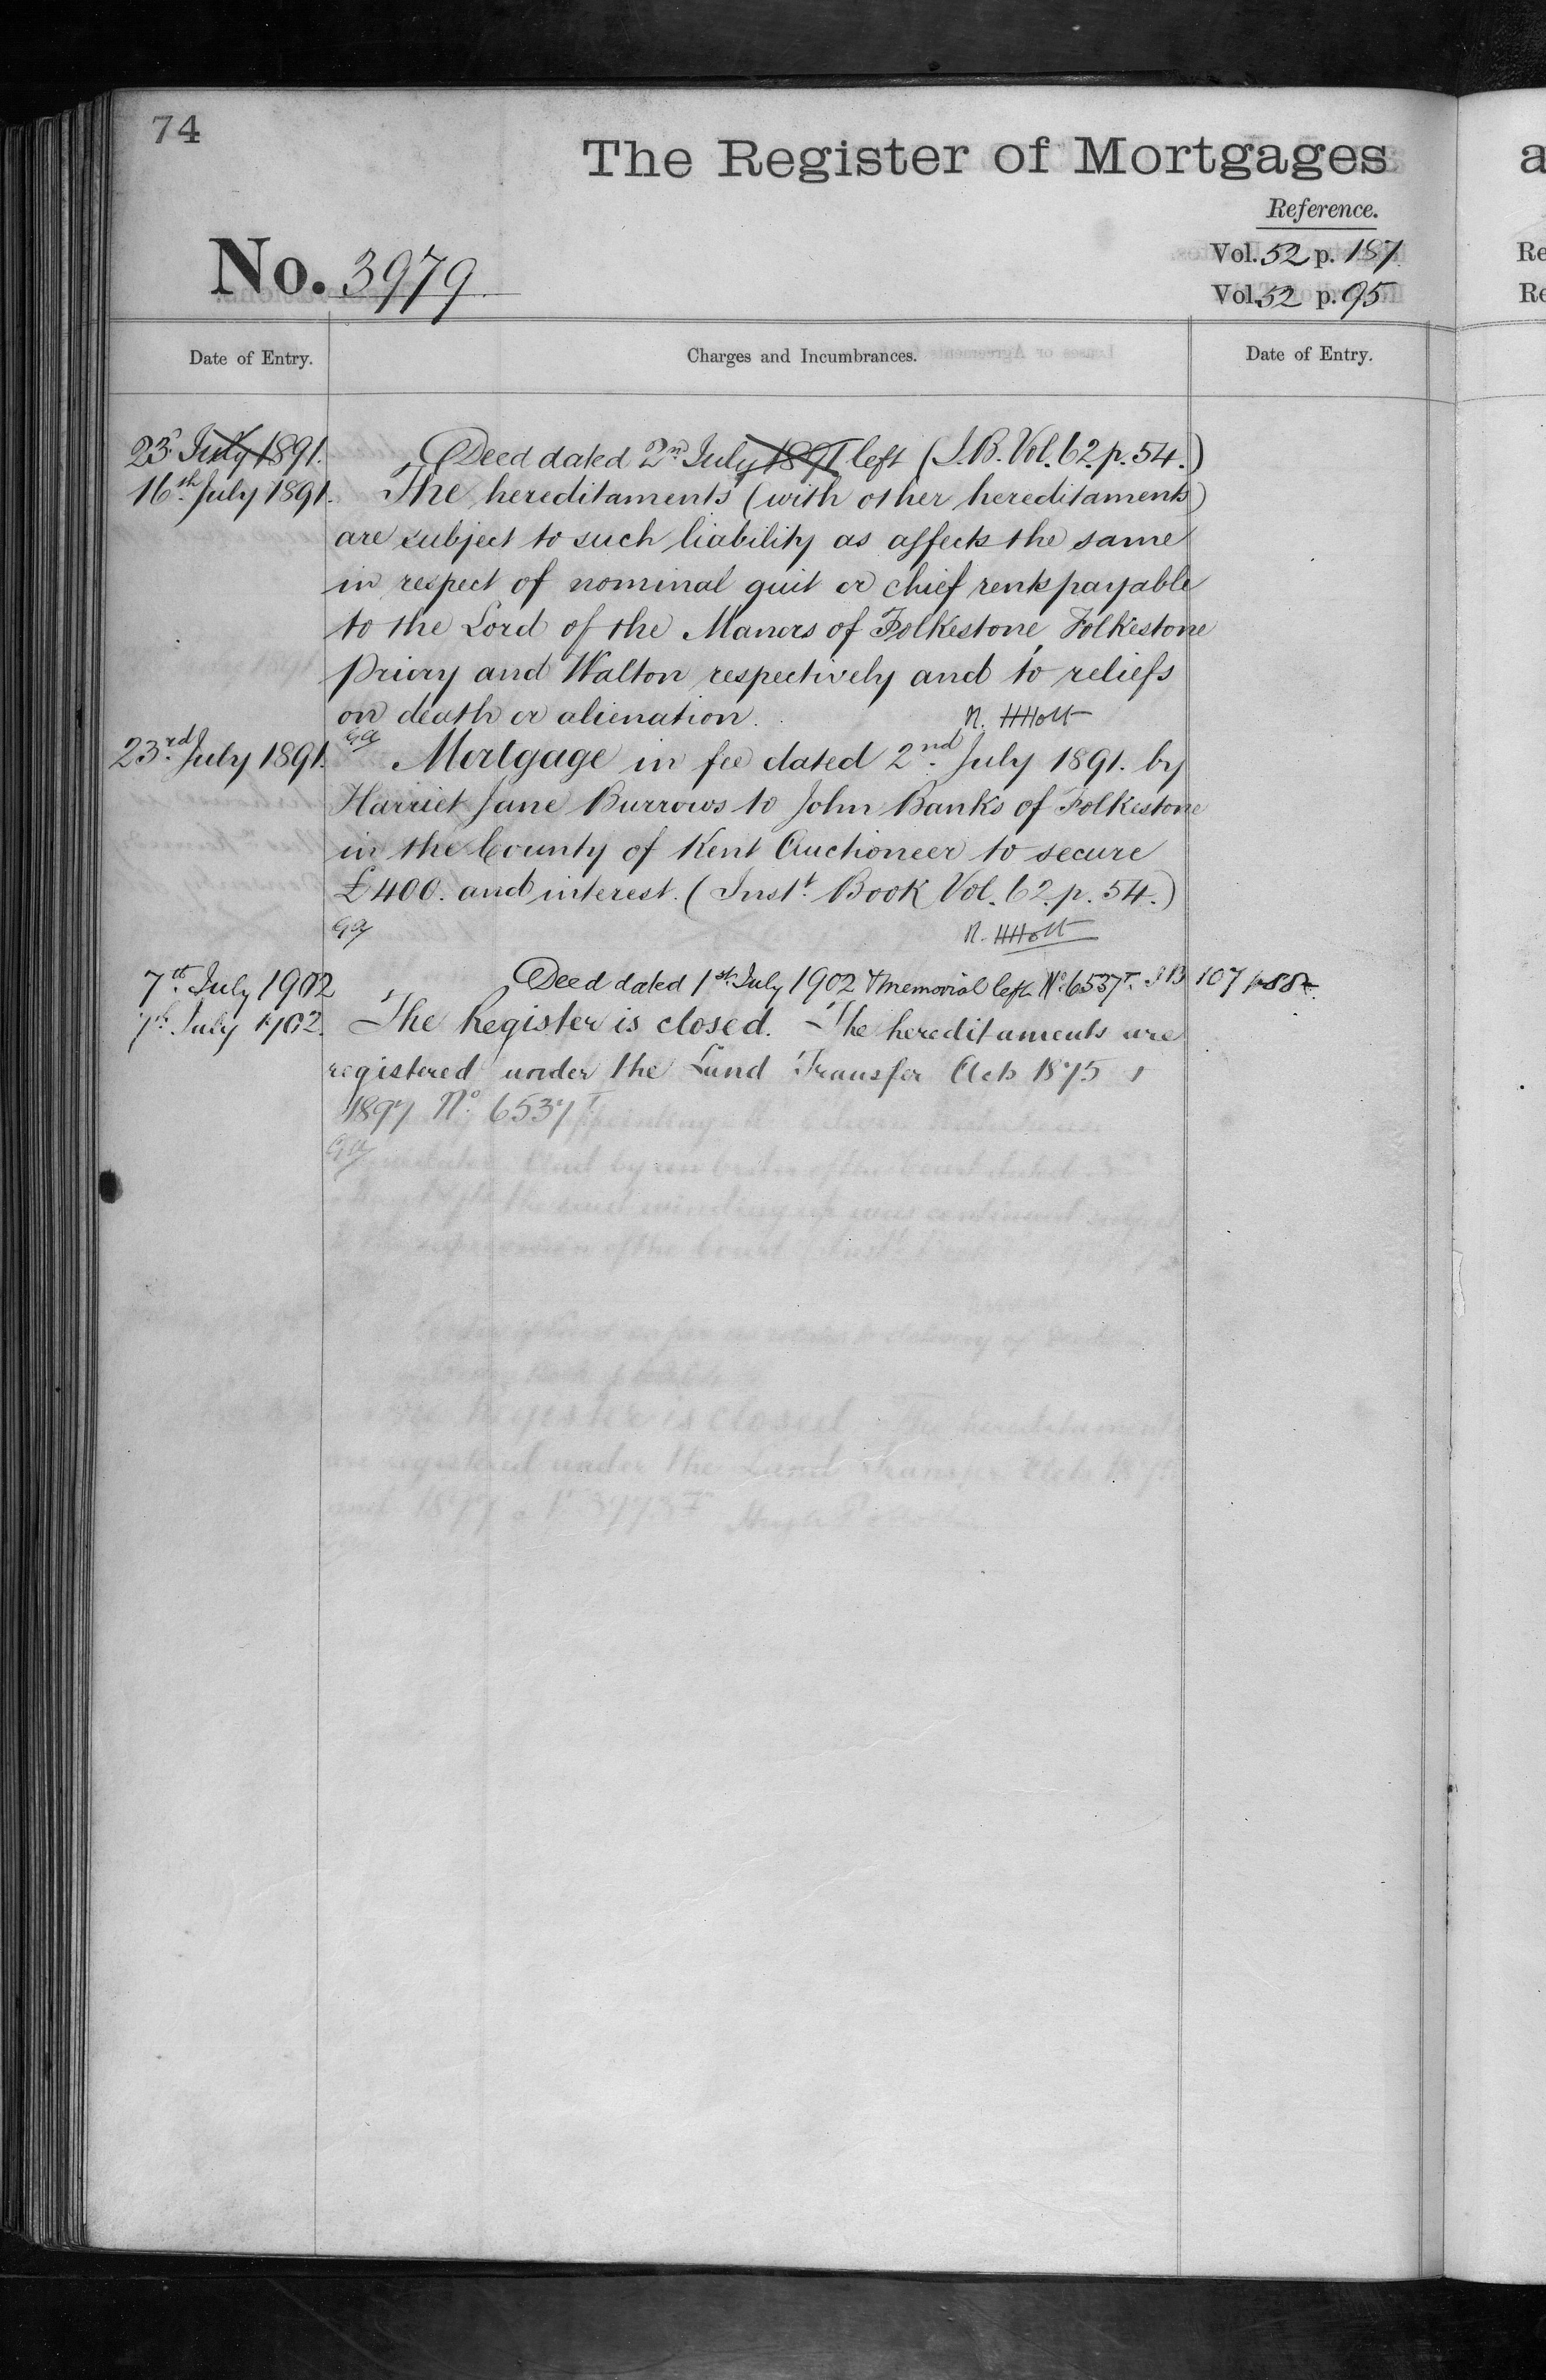 74
The Register of Mortgages
Reference.
No. 3979
Vol. 52 p. 187
Vol. 52 p. 95
Date of Entry.
Charges and Incumbrances.
Date of Entry.
23 July 1891. Deed dated 2nd July 1891 left (I.B. Vol. 62. p. 54.)
16th July 1891. The hereditaments (with other hereditaments)
are subject to such liability as affects the same
in respect of nominal quit or chief rents payable
to the Lord of the Manors of Folkestone, Folkestone
Priory and Walton respectively and to reliefs
on death or alienation. N. HHolt
23rd July 1891. Mortgage in fee dated 2nd July 1891. by
Harriet Jane Burrows to John Banks of Folkestone
in the County of Kent Auctioneer to secure
£400. and interest. (Inst. Book Vol. 62. p. 54.)
N. HHolt
7th July 1902 Deed dated 1st July 1902 & memorial left No. 6537T. I B 107 p 88
7th July 1902. The Register is closed. The hereditaments are
registered under the Land Transfer Acts 1875 &
1897 No. 6537T
a
Re
Re